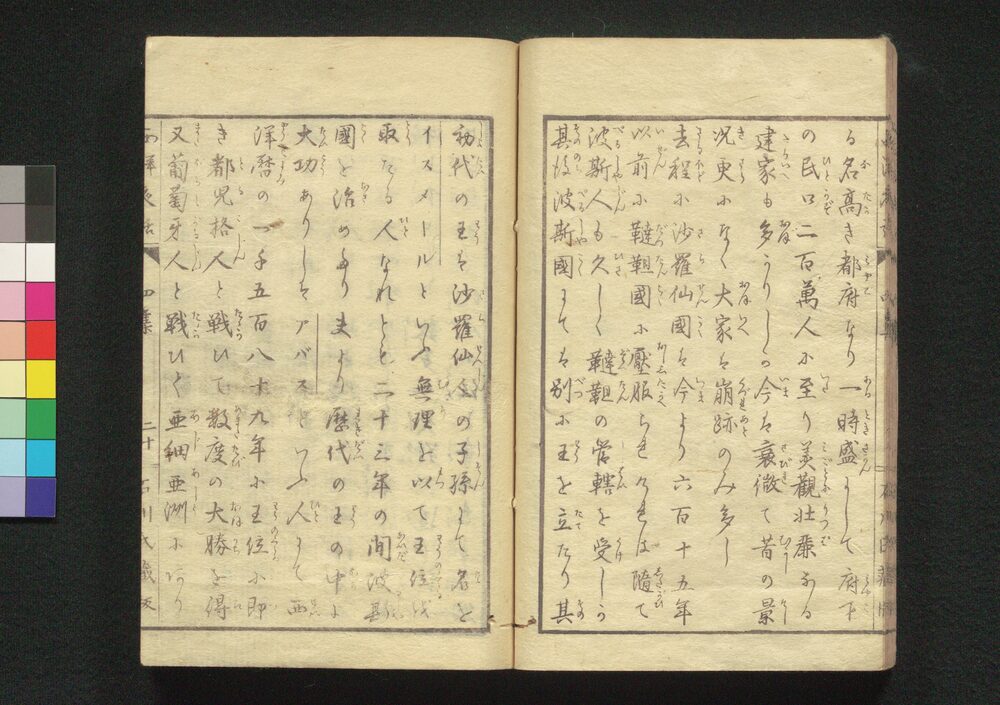 る名高き都府なり一時盛にして府下
の民口二百萬人に至り美觀壮麗なる
建家も多かりしが今は衰微て昔の景
况更になく大家は崩跡のみ多し
去程に沙羅仙國は今より六百十五年
以前に韃靼國に壓服られければ隨て
波斯人も久しく韃靼の管轄を受しが
其後波斯國にては別に王を立たり其
初代の王は沙羅仙人の子孫にて名を
イスメールといふ無理を以て王位を
取たる人なれども二十三年の間波斯
國を治めたり夫より歴代の王の中に
大功ありしはアバスといふ人にて西
洋暦の一千五百八十九年に王位に即
き都児格人と戰ひて数度の大勝を得
又葡萄牙人と戰ひて亜細亜洲に
四集
二十
石川氏藏版